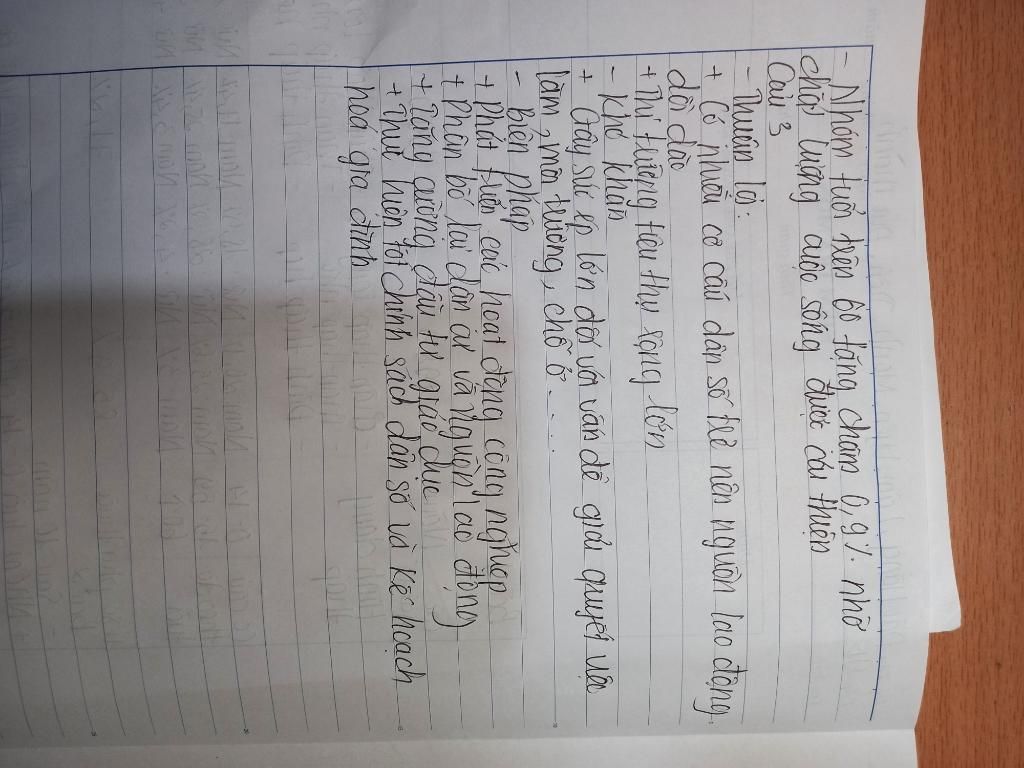 - Nhóm tuổi trên 60 tăng chậm 0,9% nhờ
chất lượng cuộc sống được cải thiện
Câu 3
- Thuận lợi:
+ Có nhiều cơ cấu dân số trẻ nên nguồn lao động
dồi dào
+ Thị trường tiêu thụ rộng lớn
- Khó khăn
+ Gây sức ép lớn đối với vấn đề giải quyết việc
làm, môi trường, chỗ ở....
- Biện pháp
+ Phát triển các hoạt động công nghiệp
+ Phân bố lại dân cư và nguồn lao động
+ Tăng cường đầu tư giáo dục
+ Thực hiện tốt chính sách dân số và kế hoạch
hoá gia đình